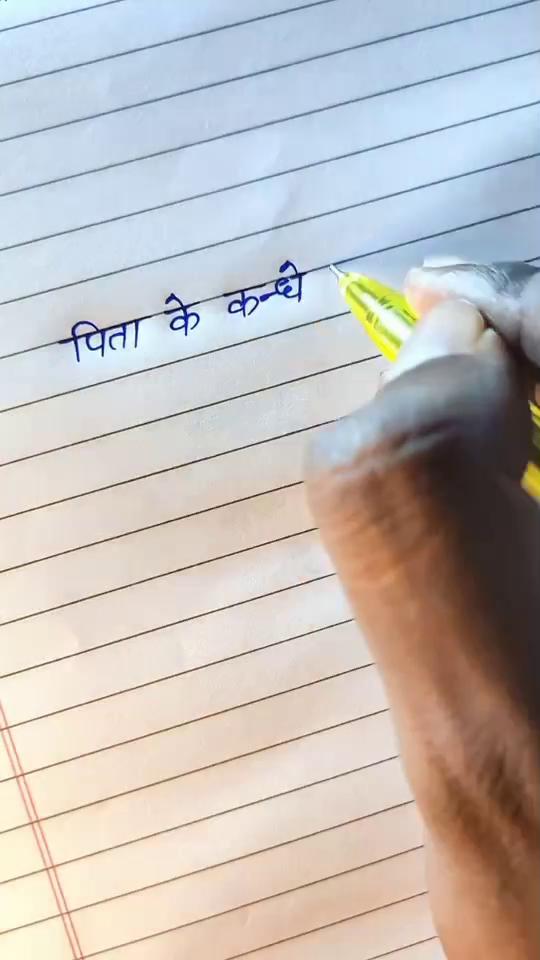 पिता के कन्धे